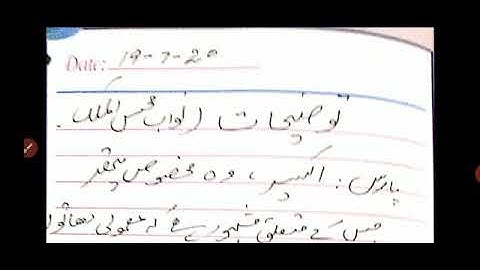 Date: 19-7-20
توضیحات (نواب محسن الملک
پارس: اکسیر، وہ مخصوص پتھر
جس کے متعلق مشہور ہے کہ معمولی دھاتوں